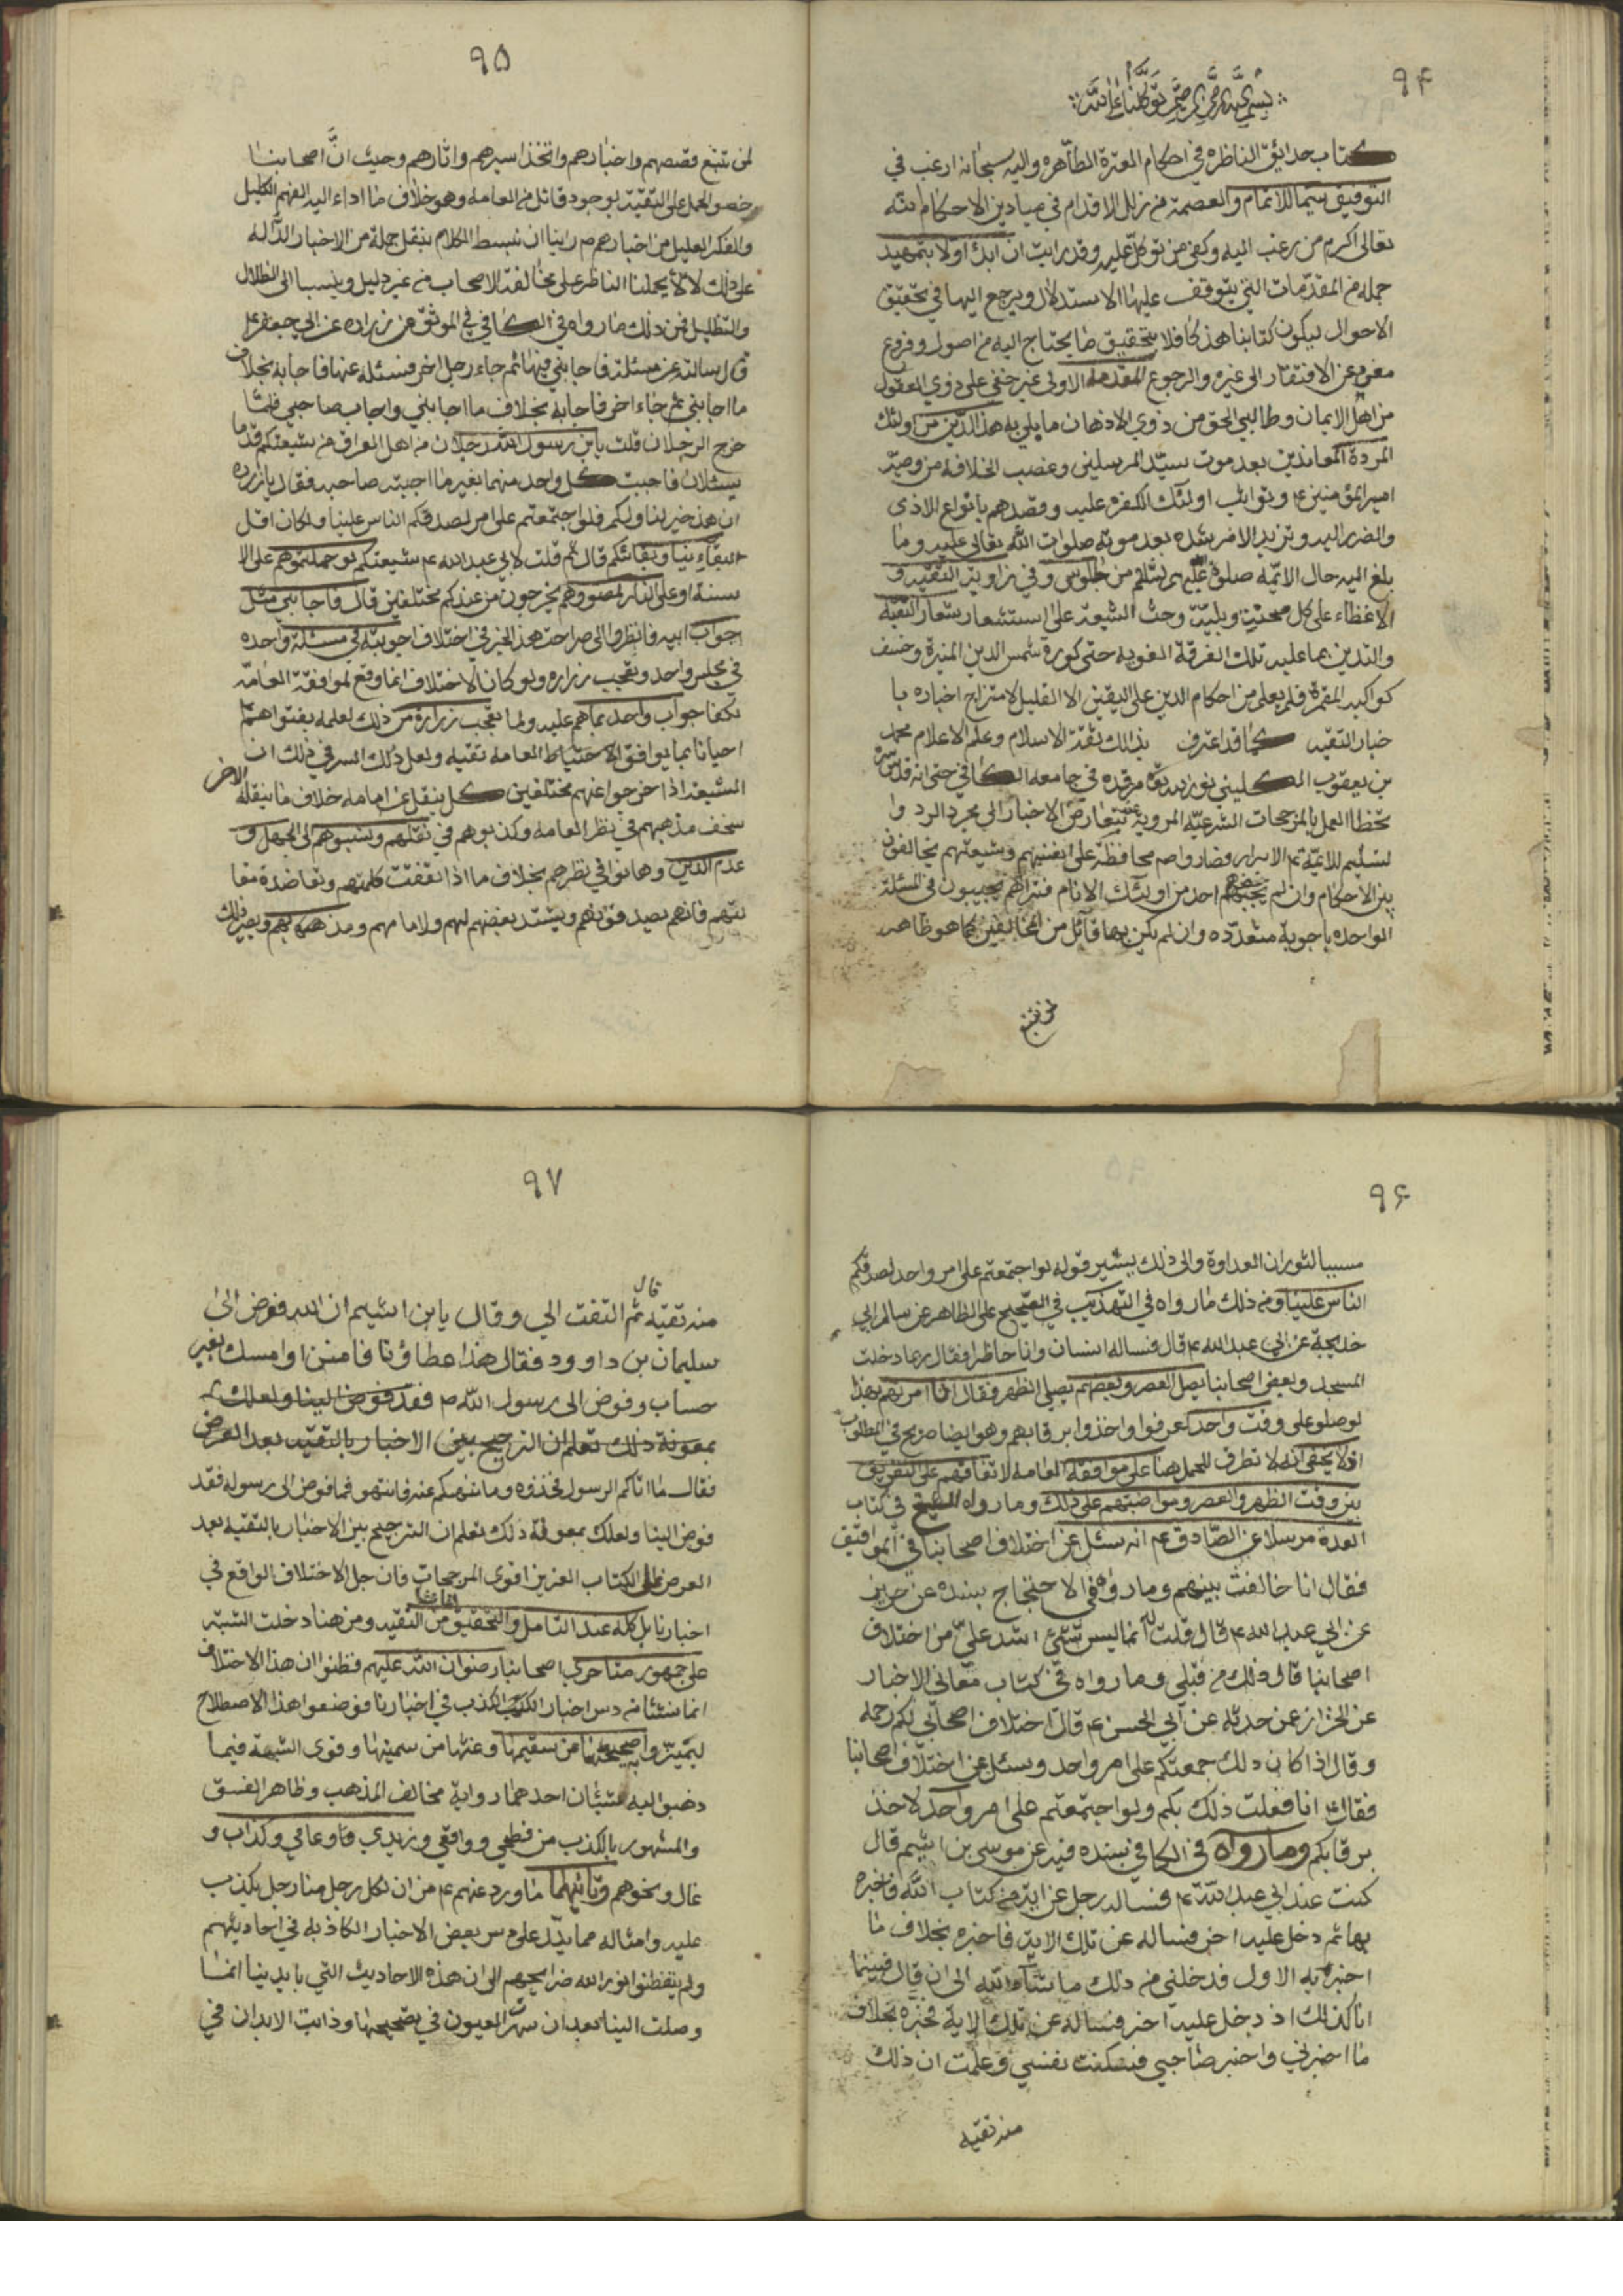 ٩٤
بسم الله الرحمن الرحيم توكلنا على الله
كتاب حدايق الناظره في احكام العترة الطاهره واليه سبحانه ارغب في
التوفيق سيما للاتمام والعصمة من زلل الاقدام في ميادين الاحكام فنه
تعالى اكرم من رغب اليه وكفى من توكل عليه وقد رايت ان ابدا اولا بتمهيد
جمله من المقدمات التي يتوقف عليها الاستدلال ويرجع اليها في تحقيق
الاحوال ليكون كتابنا هذ كافلا بتحقيق ما يحتاج اليه من اصول وفروع
عن الافتقار الى غيره والرجوع المقدمه الاولى غير خفي على ذوي العقول
من اهل الايمان وطالبي الحق من ذوي الاذهان ما بلي به هذ الدين من اولئك
المردة المعاندين بعد موت سيد المرسلين وغصب الخلافه من وصيه
امير المؤمنين ع وتواثب اولئك الكفره عليه وقصدهم بانواع الاذى
والضرر اليه وتزيد الامر شده بعد موته صلوات الله تعالى عليه وما
بلغ اليه حال الائمه صلوة عليهم من الجلوس وفي زاوية التقيه و
الاغضاء على كل محنة وبليه وحث الشيعه على استشعار شعار التقيه
والتدين بما عليه تلك الفرقة الغويه حتى كورة شمس الدين المنيرة وخسف
كواكبه المقمرة فلم يعلم من احكام الدين على اليقين الا القليل لامتزاج اخباره با
خبار التقيه كما قد اعترف بذالك ثقة الاسلام وعلم الاعلام محمد
بن يعقوب الكليني نور الله مرقده في جامعه الكافي حتى انه قدس سره
تخطا العمل بالمرجحات الشرعيه المرويه عند تعارض الاخبار الى مجرد الرد وا
لتسليم للائمة الابرار فصاروا ص محافظة على انفسهم وشيعتهم يخالفون
بين الاحكام وان لم يحضرهم احد من اولئك الانام فتراهم يجيبون في المسئلة
الواحده باجوبة متعدده وان لم يكن بها قائل من المخالفين كما هو ظاهر
لمن تتبع
٩٥
لمن تتبع قصصهم واخبارهم واتخذ سيرهم واثارهم وحيث ان اصحابنا
خصو الحمل على التقيه بوجود قائل من العامه وهو خلاف ما اداء اليه الفهم الكليل
والفكر العليل من اخبارهم ص راينا ان نبسط الكلام بنقل جملة من الاخبار الداله
على ذلك لئلا يحملنا الناظر على مخالفة الاصحاب من غير دليل وينسبنا الى الظلال
والتظليل فمن ذلك ما رواه في الكافي في الموثق عن زراره عن ابي جعفر ع
قال سالته عن مسئلة فاجابني فيها ثم جاء رجل اخر فسئله عنها فاجابه بخلاف
ما اجابني ثم جاء اخر فاجابه بخلاف ما اجابني واجاب صاحبي فلما
خرج الرجلان قلت يابن رسول الله رجلان من اهل العراق من شيعتكم قدما
يسئلان فاجبت كل واحد منهما بغير ما اجبته صاحبه فقال يا زراره
ان هذ خير لنا ولكم فلو اجتمعتم على امر لصدقكم الناس علينا ولكان اقل
البقاء بينا وبقائكم قال ثم قلت لابي عبد الله ع شيعتكم لو حملتموهم على الا
سنة او على النار لمضو وهم يخرجون من عندكم مختلفين قال فاجابني مثل
جواب ابيه فانظر الى صراحة هذ الخبر في اختلاف اجوبته في مسئلة واحده
في مجلس واحد وتعجب زراره ولو كان الاختلاف انما وقع لموافقة العامه
لكفا جواب واحد بما هم عليه ولما تعجب زرارة من ذلك لعلمه بفتواهم
احيانا بما يوافق العامه تقيه ولعل ذلك السر في ذلك ان
الشيعه اذا خرجوا عنهم مختلفين كل ينقل عن امامه خلاف ما ينقله الاخر
سخف مذهبهم في نظر العامه وكذبوهم في نقلهم ونسبوهم الى الجهل و
عدم الدين وهانوا في نظرهم بخلاف ما اذا اتفقت كلمتهم وتعاضدة مقا
لتهم فانهم يصدقونهم ويشتد بغضهم لهم ولامامهم ومذهبهم ويصير ذلك
٩٦
مسببا لثوران العداوة والى ذلك يشير قوله لو اجتمعتم على امر واحد لصدقكم
الناس علينا ومن ذلك ما رواه في التهذيب في الصحيح على الظاهر عن سالم ابي
خديجة عن ابي عبد الله ع قال فساله انسان وانا حاظر فقال ربما دخلت
المسجد وبعض اصحابنا يصل العصر وبعضهم يصلي الظهر فقال انا امرتهم بهذا
لو صلو على وقت واحد لعرفوا واخذوا برقابهم وهو ايضا صريح في المطلوب
اذ لا يخفى انه لا تطرف للحمل هنا على موافقة العامه لاتفاقهم على التفريق
بين وقت الظهر والعصر ومواضبتهم على ذلك وما رواه الشيخ في كتاب
العدة مرسلا عن الصادق ع انه سئل عن اختلاف اصحابنا في المواقيت
فقال انا خالفت بينهم وما رواه في الاحتجاج بسنده عن حريز
عن ابي عبد الله ع قال قلت له انه ليس شئ اشد علي من اختلاف
اصحابنا قال ذلك من قبلي وما رواه في كتاب معاني الاخبار
عن الخزاز عن حدثه عن ابي الحسن ع قال اختلاف اصحابي لكم رحمه
وقال اذا كان ذلك جمعتكم على امر واحد وسئل عن اختلاف اصحابنا
فقال ع انا فعلت ذلك بكم ولو اجتمعتم على امر واحد لاخذ
برقابكم وما رواه في الكافي بسنده فيه عن موسى بن اشيم قال
كنت عند ابي عبد الله ع فساله رجل عن اية من كتاب الله فاخبره
بها ثم دخل عليه اخر فساله عن تلك الايه فاخبره بخلاف ما
اخبر به الاول فدخلني من ذلك ما شاء الله الى ان قال فبينما
انا كذالك اذ دخل عليه اخر فساله عن تلك الاية فخبره بخلاف
ما اخبرني واخبر صاحبي فسكنت نفسي وعلمت ان ذلك
منه تقيه
٩٧
منه تقيه قال ثم التفت الي وقال يابن اشيم ان الله فوض الى
سليمان بن داوود فقال هذا عطاؤنا فامنن او امسك بغير
حساب وفوض الى رسول الله ص فقد فوض الينا ولعلك
بمعونة ذلك تعلم ان الترجيح بين الاخبار بالتقيه بعد العرض
فقال ما اتاكم الرسول فخذوه وما نهيكم عنه فانتهو فما فوض الى رسوله فقد
فوض الينا ولعلك بمعونة ذلك تعلم ان الترجيح بين الاخبار بالتقيه بعد
العرض على الكتاب العزيز اقوى المرجحات فان جل الاختلاف الواقع في
اخبارنا بل كله عند التامل والتحقيق من التقيه ومن هنا دخلت الشبه
على جمهور متاخري اصحابنا رضوان الله عليهم فظنوا ان هذا الاختلاف
انما نشئا من دس اخبار الكذب في اخبارنا فوضعوا هذا الاصطلاح
ليميزوا صحيحها من سقيمها وغثها من سمينها وقوى الشبهة فيما
ذهبو اليه شيئان احدهما رواية مخالف المذهب وظاهر الفسق
والمشهور بالكذب من فطحي وواقفي وزيدي وعامي وكذاب و
غال ونحوهم وثانيهما ما ورد عنهم ع من ان لكل رجل منا رجل يكذب
عليه وامثاله مما يدل على دس بعض الاخبار الكاذبه في احاديثهم
ولم يتفطنوا نور الله ضرايحهم الى ان هذه الاحاديث التي بايدينا انما
وصلت الينا بعد ان سهرت العيون في تصحيحها وذابت الابدان في